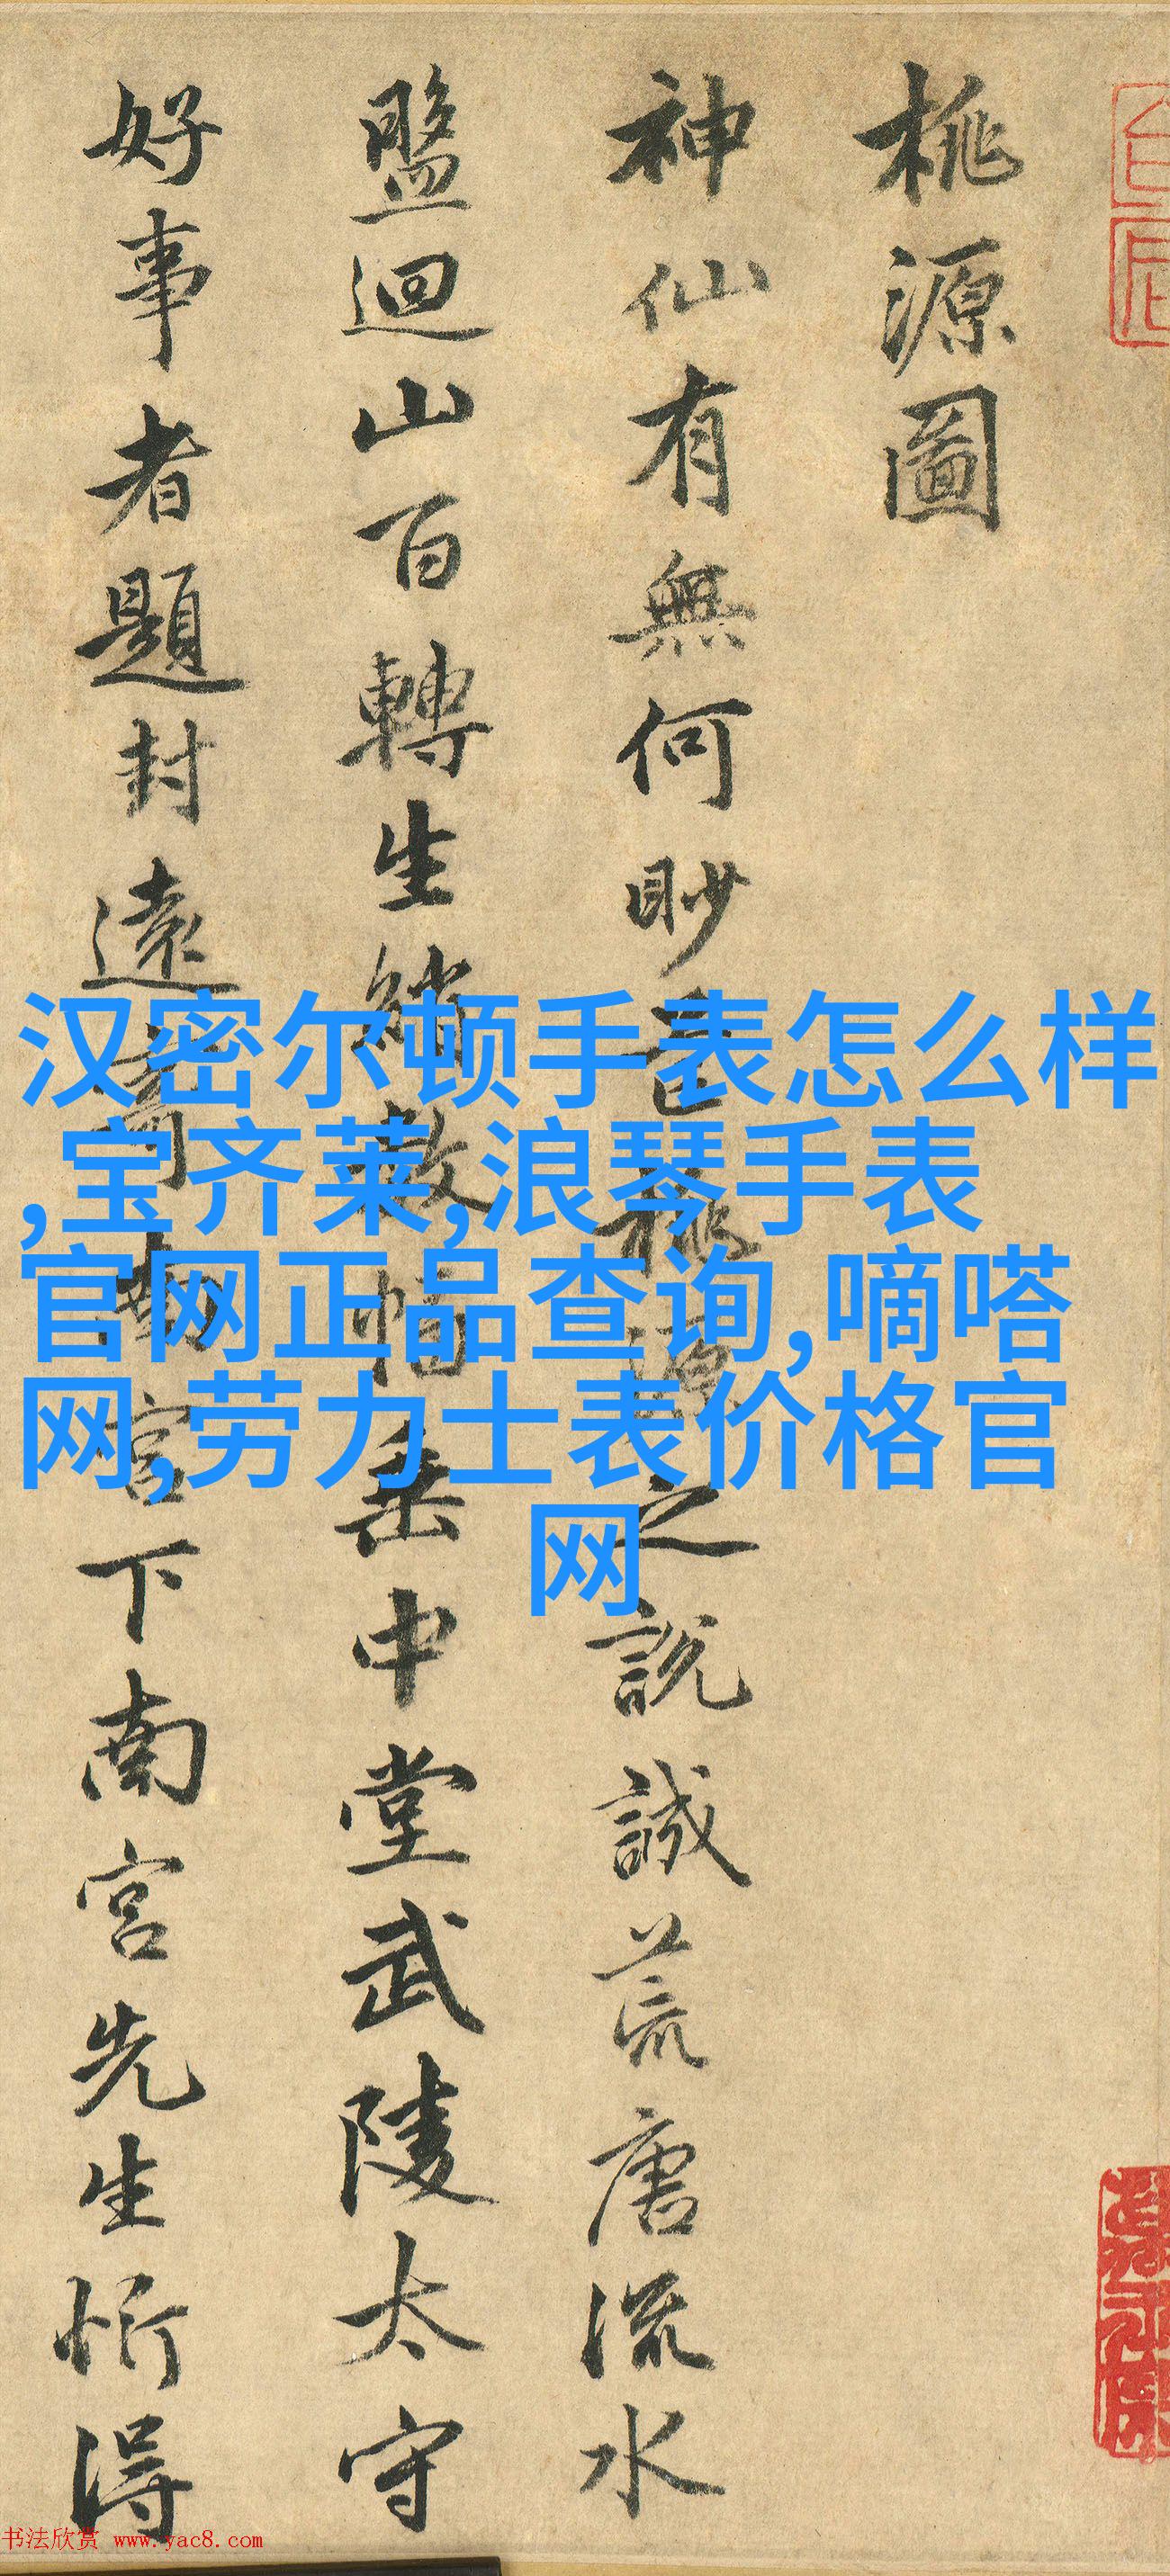 桃源圖
神仙有無何眇芒桃源之說誠荒唐流水
盤迴山百轉生綃數幅垂中堂武陵太守
好事者題封遠寄南宮下南宮先生忻得
汉密尔顿手表怎么样
,宝齐莱,浪琴手表
官网正品查询,嘀嗒
网,劳力士表价格官
网
书法欣赏 www.yac8.com